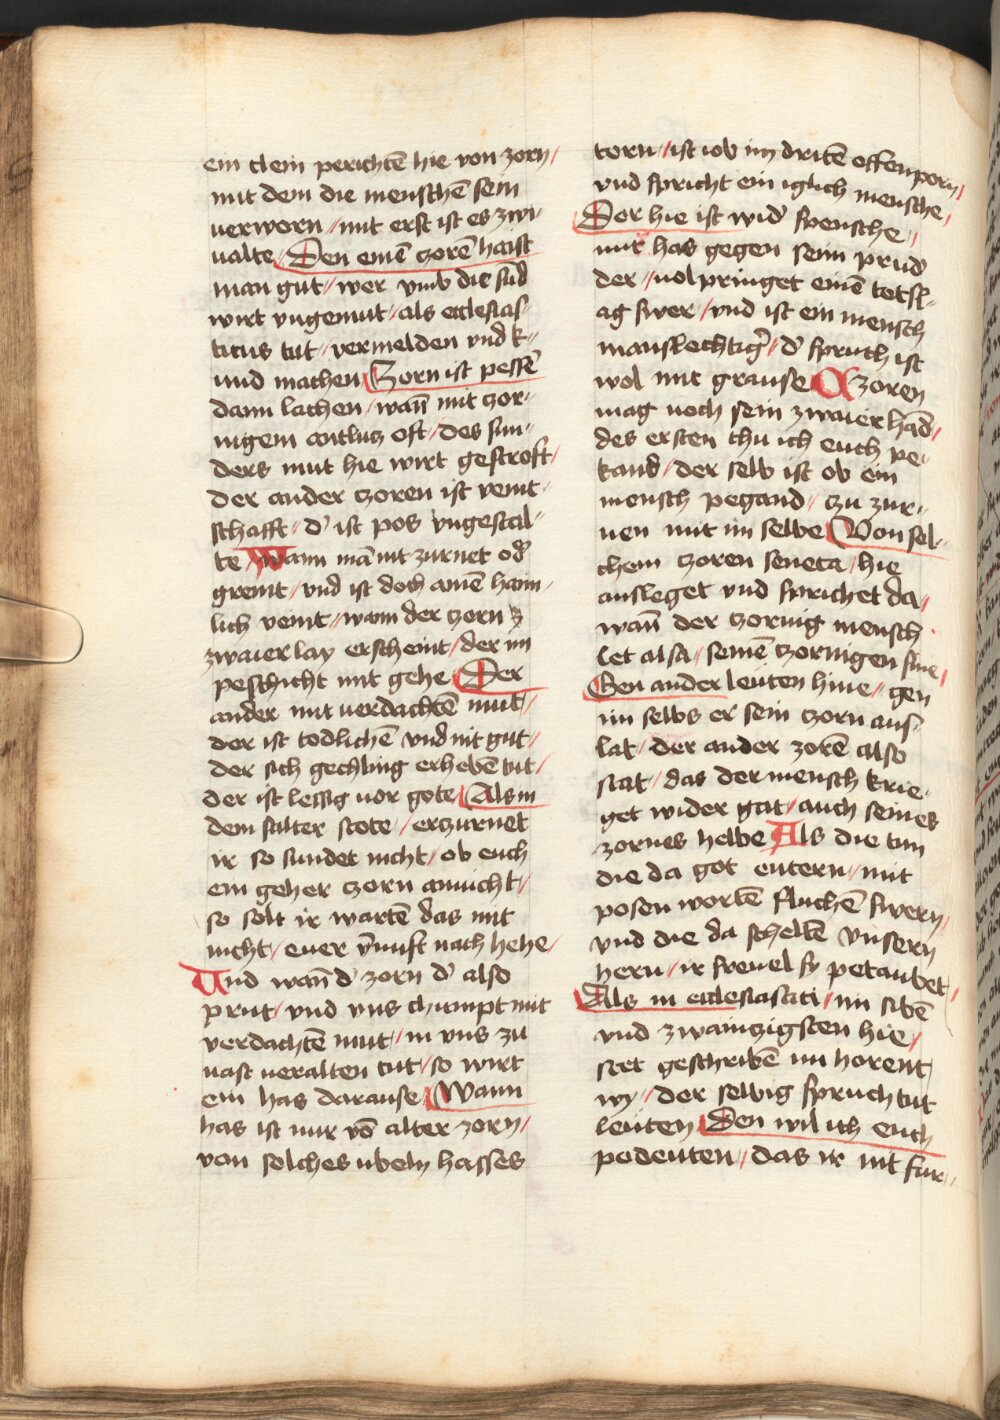 ein clein perichtē hie von zorn /
mit dem die menschē sein
verworn / mit erst ist es zwi-
ualte / Den einē czorē haist
man gut / wer vmb die sūd
wirt vngemut / als ecclesias-
ticus tut / vermelden vnd k-
und machen Zorn ist pesser
dann lachen / wañ mit czor-
nigem antlucz oft / des sun-
ders mut hie wirt gestroft /
der ander czoren ist veint-
schafft / d' ist pos vngestal-
te Wann mā nit zurnet od'
greint / vnd ist doch ainē haim-
lich veint / wann der czorn
zwaierlay erscheint / der im
peschicht mit gehe / Der
ander mit verdachtē mut /
der ist todlichē vnd nit gut /
der sich gechling erhebē tut /
der ist lessig vor gote / Als in
dem salter stote / erczurnet
ir so sundet nicht / ob euch
ein geher czorn anuicht /
so solt ir wartē das mit
nicht / euer v̄nuft nach hehe /
Und wañ d' zorn d' also
prut / vnd vns chumpt mit
verdachtē mut / in vns zu
vast veralten tut / so wirt
ein has darause / Wann
has ist nur vō alter zorn /
van solches ubeln hasses
torn / ist iob im dritē offenporn /
vnd spricht ein iglich mensche /
Der hie ist wid' spensche /
mit has gegen seim prud
der / volpringet einē totsl-
ag swer / vnd ist ein mensch
manslechtig' / d' spruch ist
wol mit grause Czoren
mag noch sein zwaier hād /
des ersten thu ich euch pe-
kand / der selb ist ob ein
mensch pegand / zu zur-
nen mit im selbe Von sol-
chem czoren seneca / hie
ausleget vnd sprichet da /
wañ der czornig mensch
let alsa / seinē czornigen sine /
Gen ander leuten hine / gen
im selbs er sein czorn aus-
lat / der ander zorē also
stat / das der mensch krie-
get wider gat / auch seines
zornes helbe Als die tun
die da got entern / mit
posen wortē fluchē swern /
vnd die da scheltē vnsern
hern / ir freuel sy petaubet
Als in ecclesiastici / im sibē
vnd zwainzigsten hie /
stet geschribē im horent
wy / der selbig spruch tut
leuten Den wil ich euch
pedeuten / das ir nit fur-